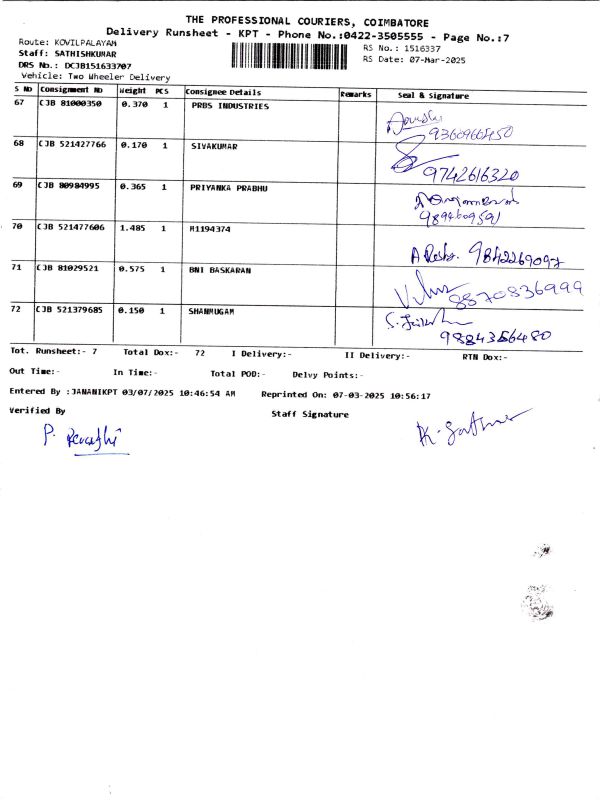 THE PROFESSIONAL COURIERS, COIMBATORE
Delivery Runsheet - KPT - Phone No.:0422-3505555 - Page No.:7
Route: KOVILPALAYAM RS No.: 1516337
Staff: SATHISHKUMAR RS Date: 07-Mar-2025
DRS No.: DCJB151633707
Vehicle: Two Wheeler Delivery
S NO Consignment NO Weight PCS Consignee Details Remarks Seal & Signature
67 CJB 81000350 0.370 1 PRBS INDUSTRIES
9360966450
68 CJB 521427766 0.170 1 SIVAKUMAR
9742616320
69 CJB 80984995 0.365 1 PRIYANKA PRABHU
9894609591
70 CJB 521477606 1.485 1 M1194374
9842269097
71 CJB 81029521 0.575 1 BNI BASKARAN
8870836999
72 CJB 521379685 0.150 1 SHANMUGAM
9884356480
Tot. Runsheet:- 7 Total Dox:- 72 I Delivery:- II Delivery:- RTN Dox:-
Out Time:- In Time:- Total POD:- Delvy Points:-
Entered By :JANANIKPT 03/07/2025 10:46:54 AM Reprinted On: 07-03-2025 10:56:17
Verified By Staff Signature
P. Revathi